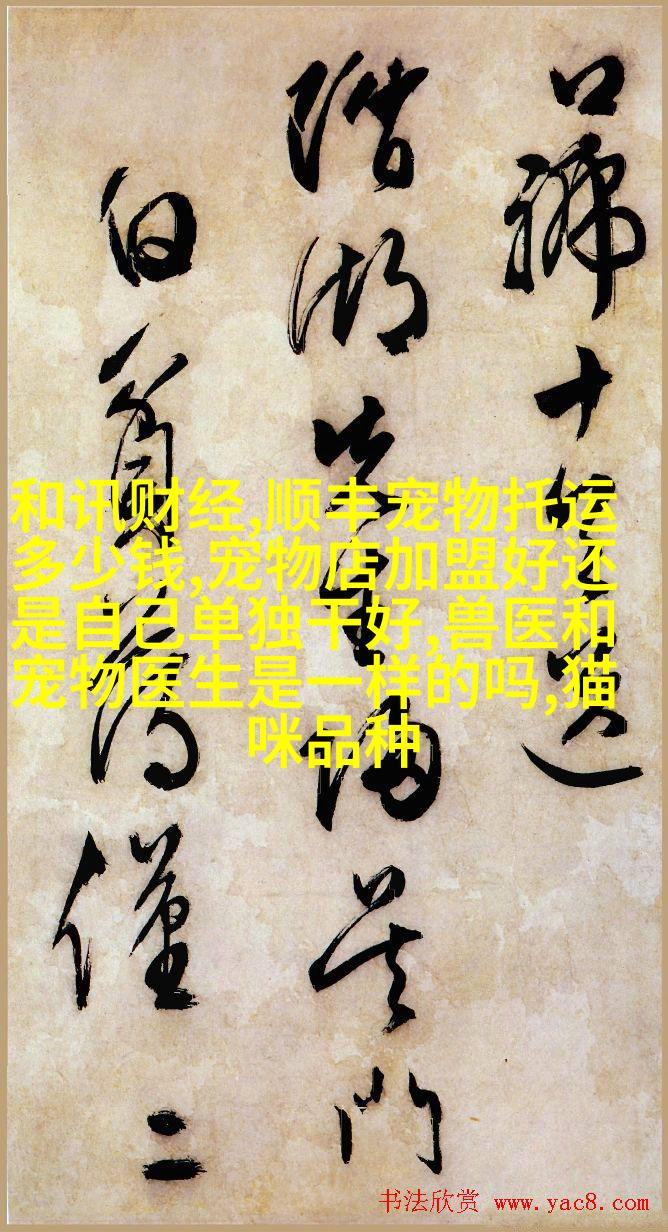 和讯财经,顺丰宠物托运
多少钱,宠物店加盟好还
是自己单独干好,兽医和
宠物医生是一样的吗,猫
咪品种
十
湖先生归吴门
白首为僅二
书法欣赏 www.yac8.com